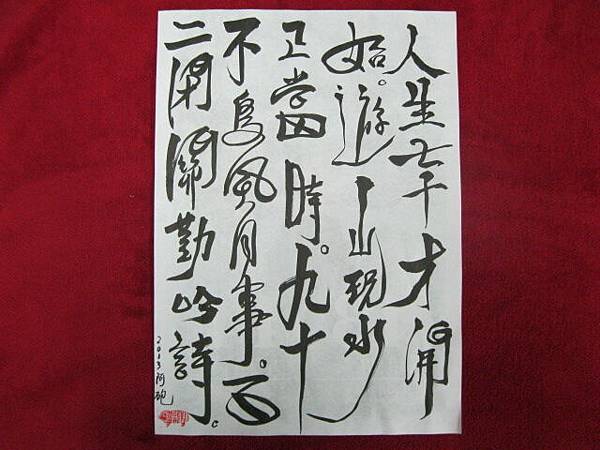 人生七十才開
始。遊山玩水
正當時。九十
不風月事。百
二閉關勤吟詩。
2013阿砲